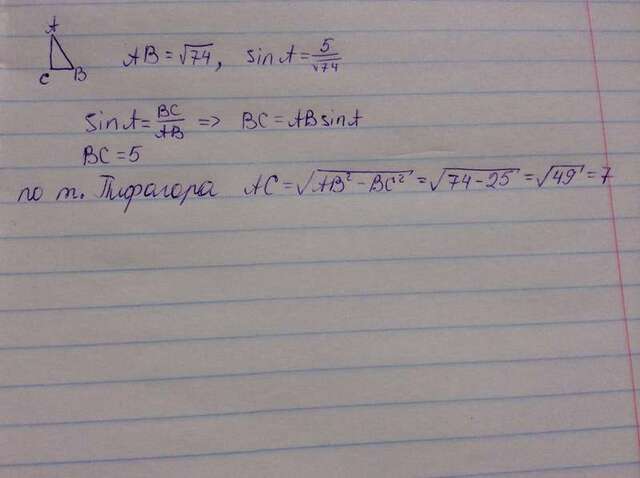 A
C B
AB = √74, sin A = 5/√74
sin A = BC/AB => BC = AB sin A
BC = 5
по т. Пифагора AC = √(AB² - BC²) = √(74 - 25) = √49 = 7